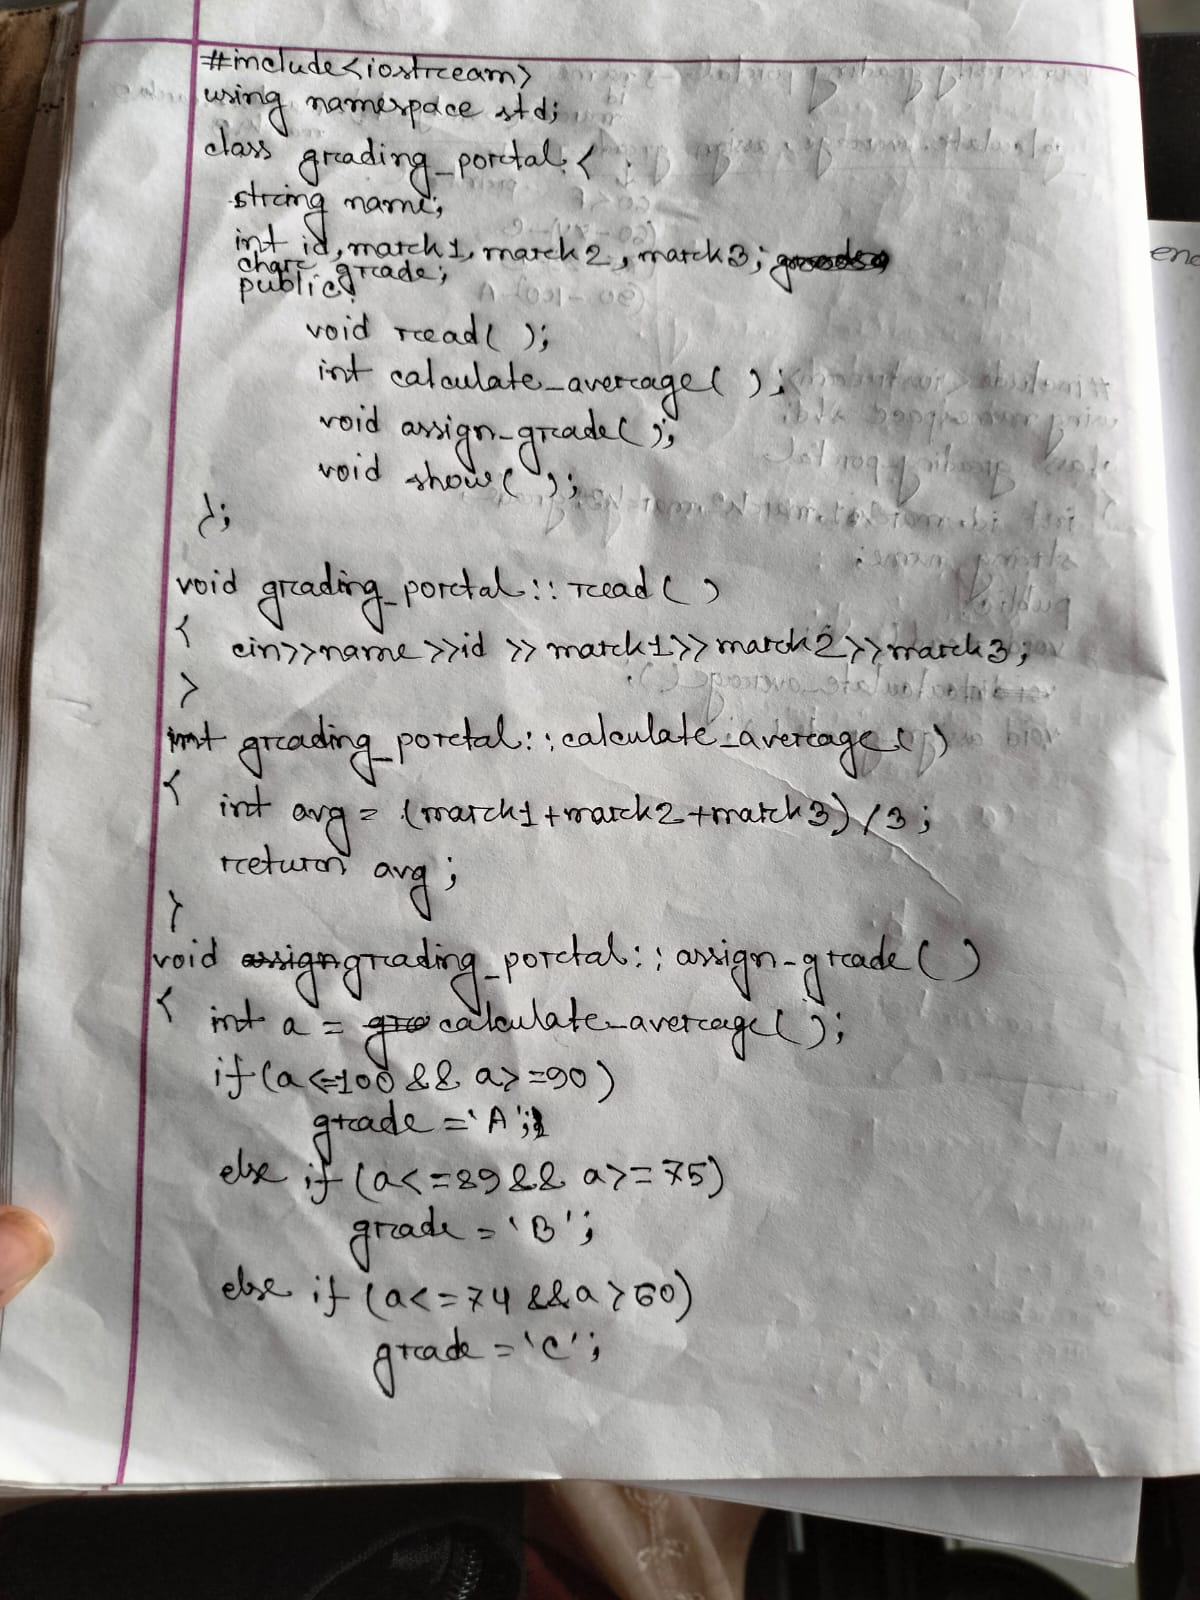 #include<iostream>
using namespace std;
class grading_portal {
string name;
int id, mark1, mark2, mark3;
char grade;
public:
void read( );
int calculate_average( );
void assign_grade( );
void show( );
};
void grading_portal :: read( )
{
cin>>name>>id >> mark1>>mark2>>mark3;
}
int grading_portal :: calculate_average( )
{
int avg = (mark1+mark2+mark3) /3 ;
return avg ;
}
void grading_portal :: assign_grade( )
{ int a = calculate_average( );
if (a<=100 && a>=90)
grade ='A';
else if (a<=89 && a>=75)
grade = 'B' ;
else if (a<=74 && a>60)
grade = 'C' ;